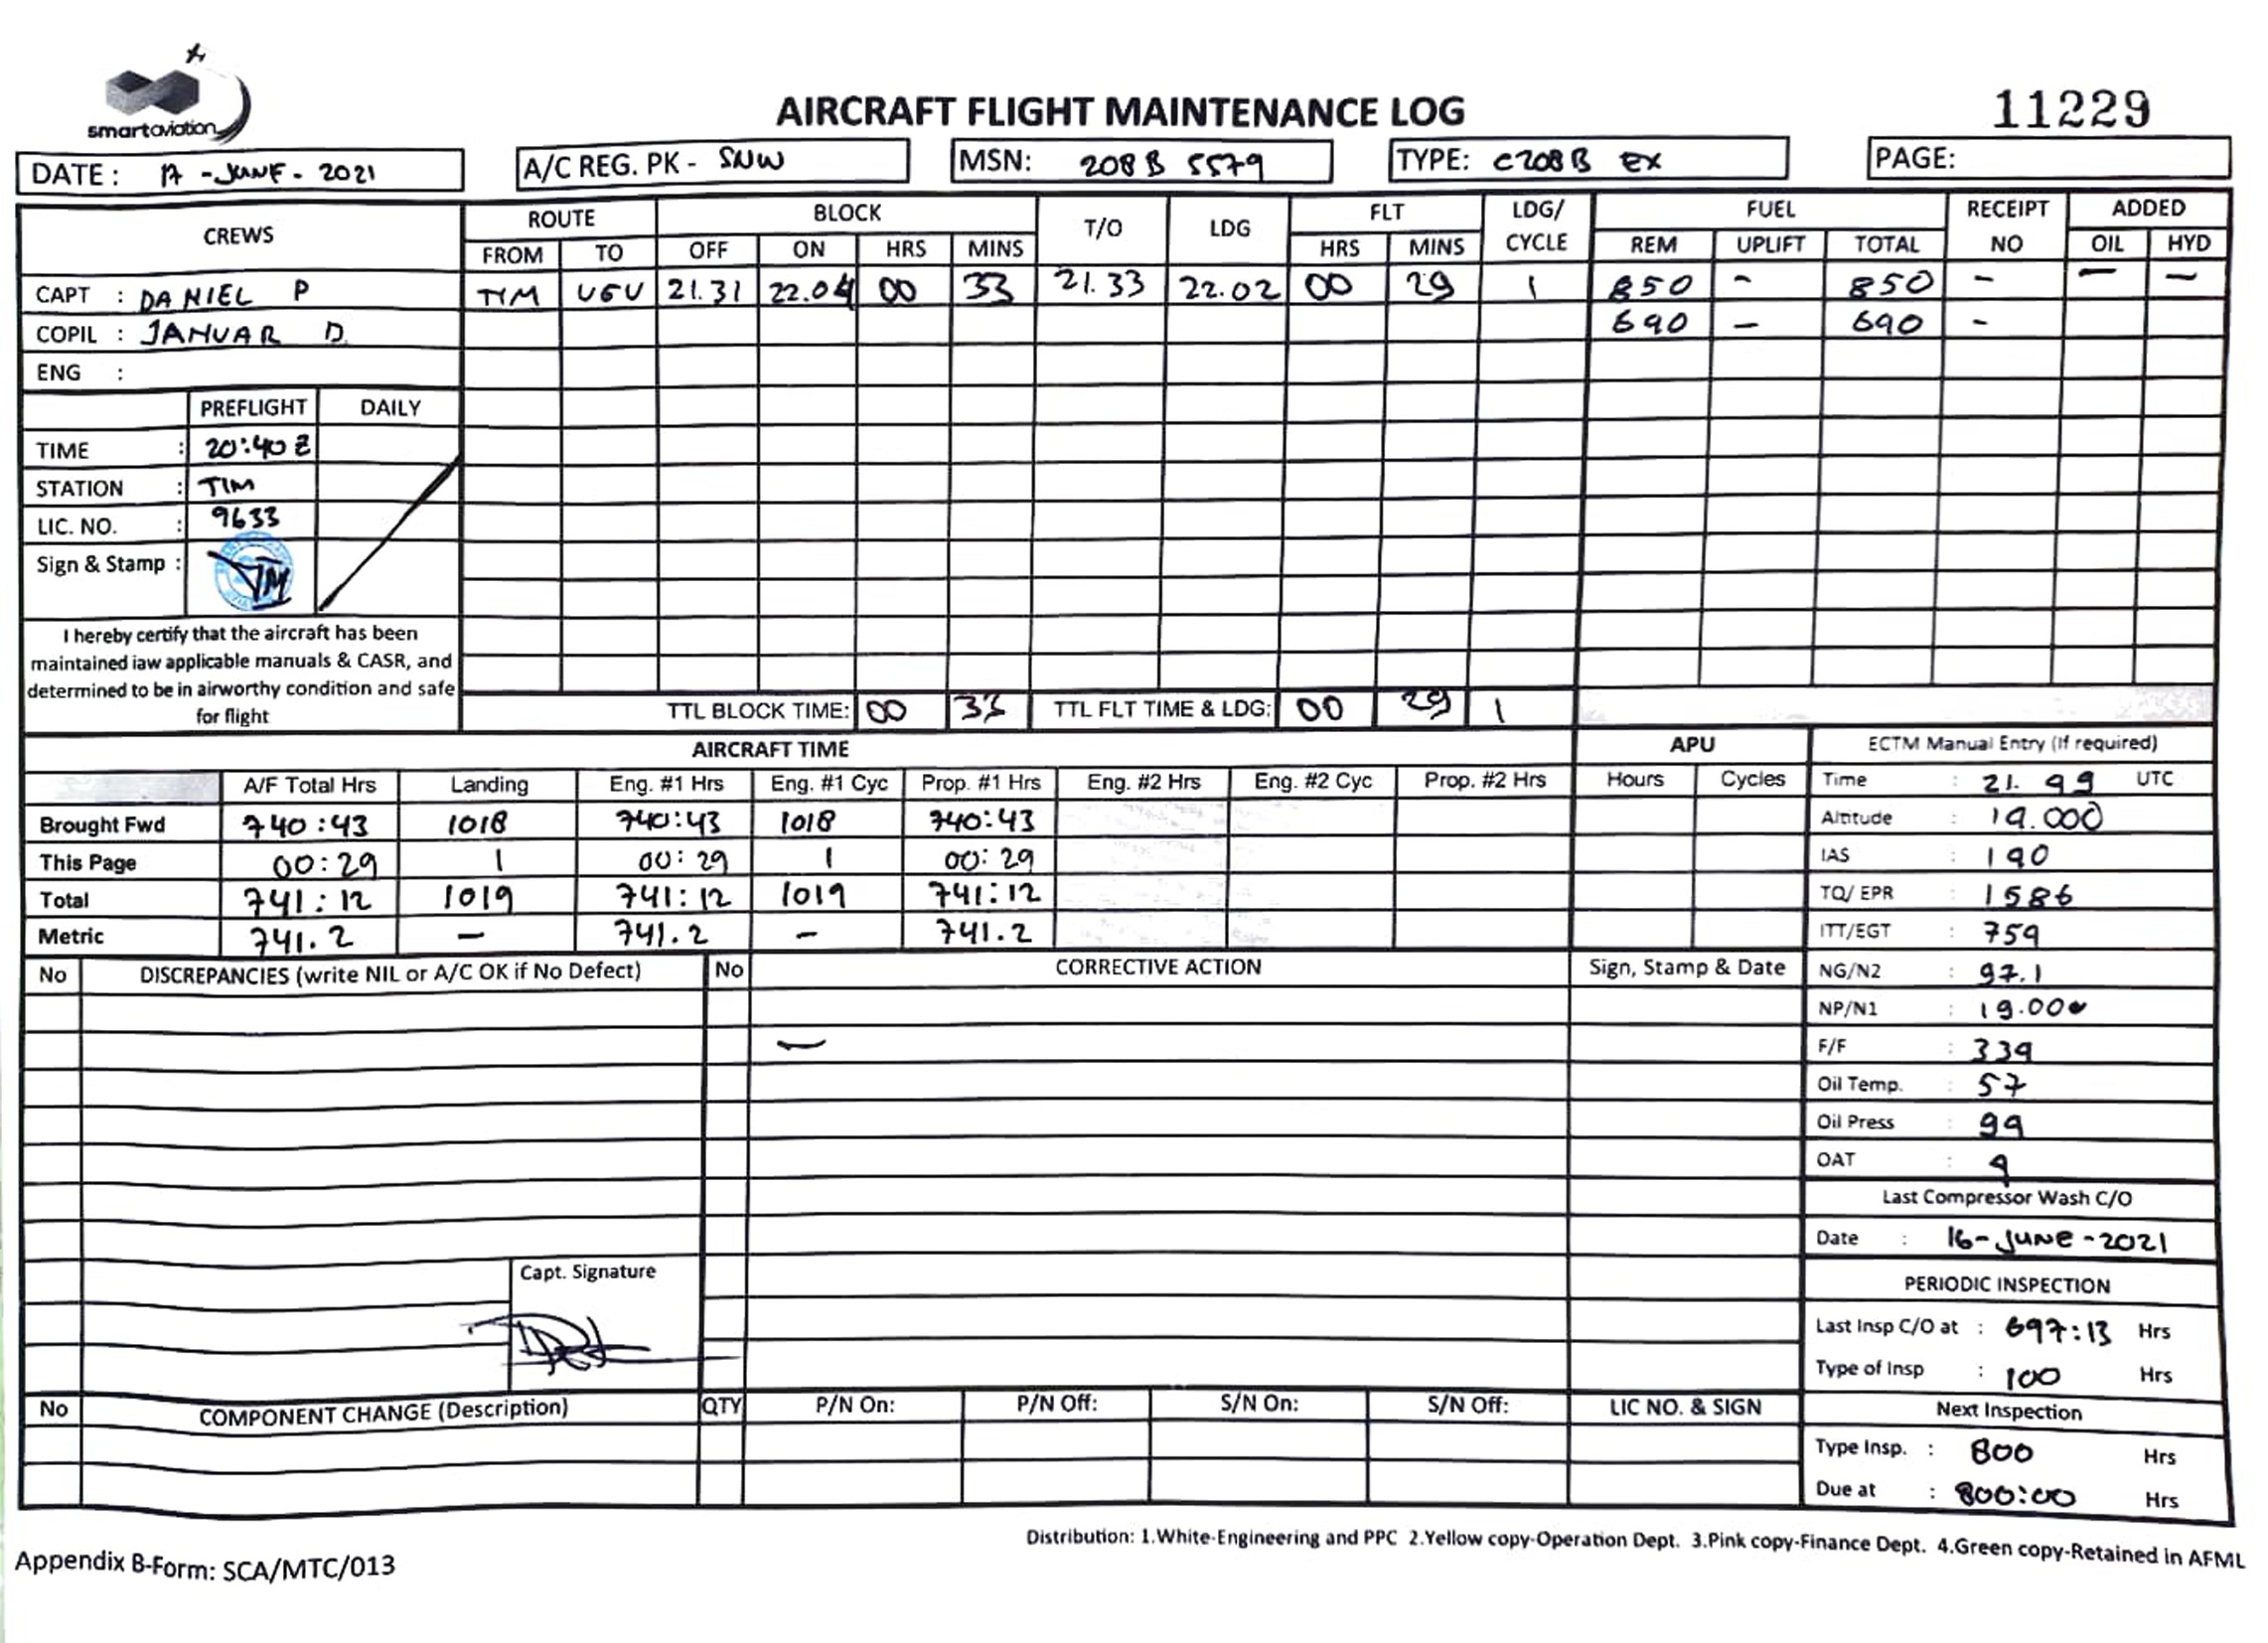 smartaviation
AIRCRAFT FLIGHT MAINTENANCE LOG
11229
DATE : 17 - JUNE - 2021
A/C REG. PK - SNW
MSN: 208 B 5579
TYPE: C208 B EX
PAGE:
CREWS ROUTE BLOCK T/O LDG FLT LDG/ CYCLE FUEL RECEIPT NO ADDED
FROM TO OFF ON HRS MINS HRS MINS REM UPLIFT TOTAL OIL HYD
CAPT : DANIEL P TIM UGU 21.31 22.04 00 33 21.33 22.02 00 29 1 850 - 850 - - -
COPIL : JANUAR D. 690 - 690 -
ENG :
PREFLIGHT DAILY
TIME : 20:40 Z
STATION : TIM
LIC. NO. : 9633
Sign & Stamp :
I hereby certify that the aircraft has been
maintained iaw applicable manuals & CASR, and
determined to be in airworthy condition and safe
for flight
TTL BLOCK TIME: 00 33 TTL FLT TIME & LDG: 00 29 1
AIRCRAFT TIME APU
A/F Total Hrs Landing Eng. #1 Hrs Eng. #1 Cyc Prop. #1 Hrs Eng. #2 Hrs Eng. #2 Cyc Prop. #2 Hrs Hours Cycles
Brought Fwd 740:43 1018 740:43 1018 740:43
This Page 00:29 1 00:29 1 00:29
Total 741:12 1019 741:12 1019 741:12
Metric 741.2 - 741.2 - 741.2
ECTM Manual Entry (If required)
Time : 21. 49 UTC
Altitude : 19.000
IAS : 190
TQ/ EPR : 1586
ITT/EGT : 759
NG/N2 : 97.1
NP/N1 : 19.000
F/F : 339
Oil Temp. : 57
Oil Press : 99
OAT : 9
Last Compressor Wash C/O
Date : 16-JUNE-2021
PERIODIC INSPECTION
Last Insp C/O at : 697:13 Hrs
Type of Insp : 100 Hrs
Next Inspection
Type Insp. : 800 Hrs
Due at : 800:00 Hrs
No DISCREPANCIES (write NIL or A/C OK if No Defect) No CORRECTIVE ACTION Sign, Stamp & Date
-
Capt. Signature
No COMPONENT CHANGE (Description) QTY P/N On: P/N Off: S/N On: S/N Off: LIC NO. & SIGN
Distribution: 1.White-Engineering and PPC 2.Yellow copy-Operation Dept. 3.Pink copy-Finance Dept. 4.Green copy-Retained in AFML
Appendix B-Form: SCA/MTC/013